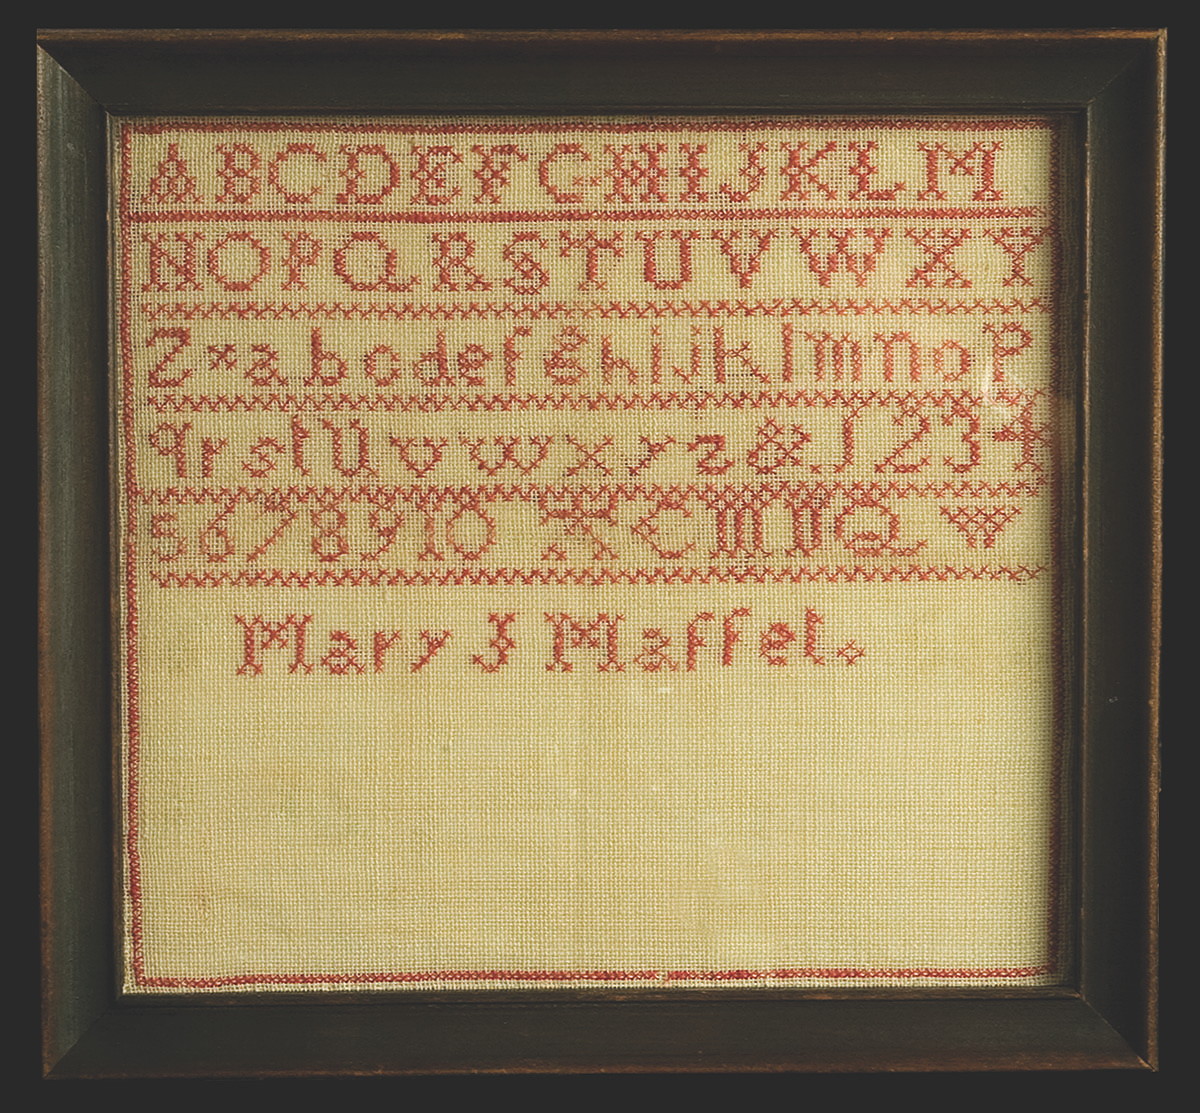 A B C D E F G H I J K L M
N O P Q R S T U V W X Y
Z x a b c d e f g h i j k l m n o p
q r s t u v w x y z & . 1 2 3 4
5 6 7 8 9 10 A C M N Q
Mary J Maffet.